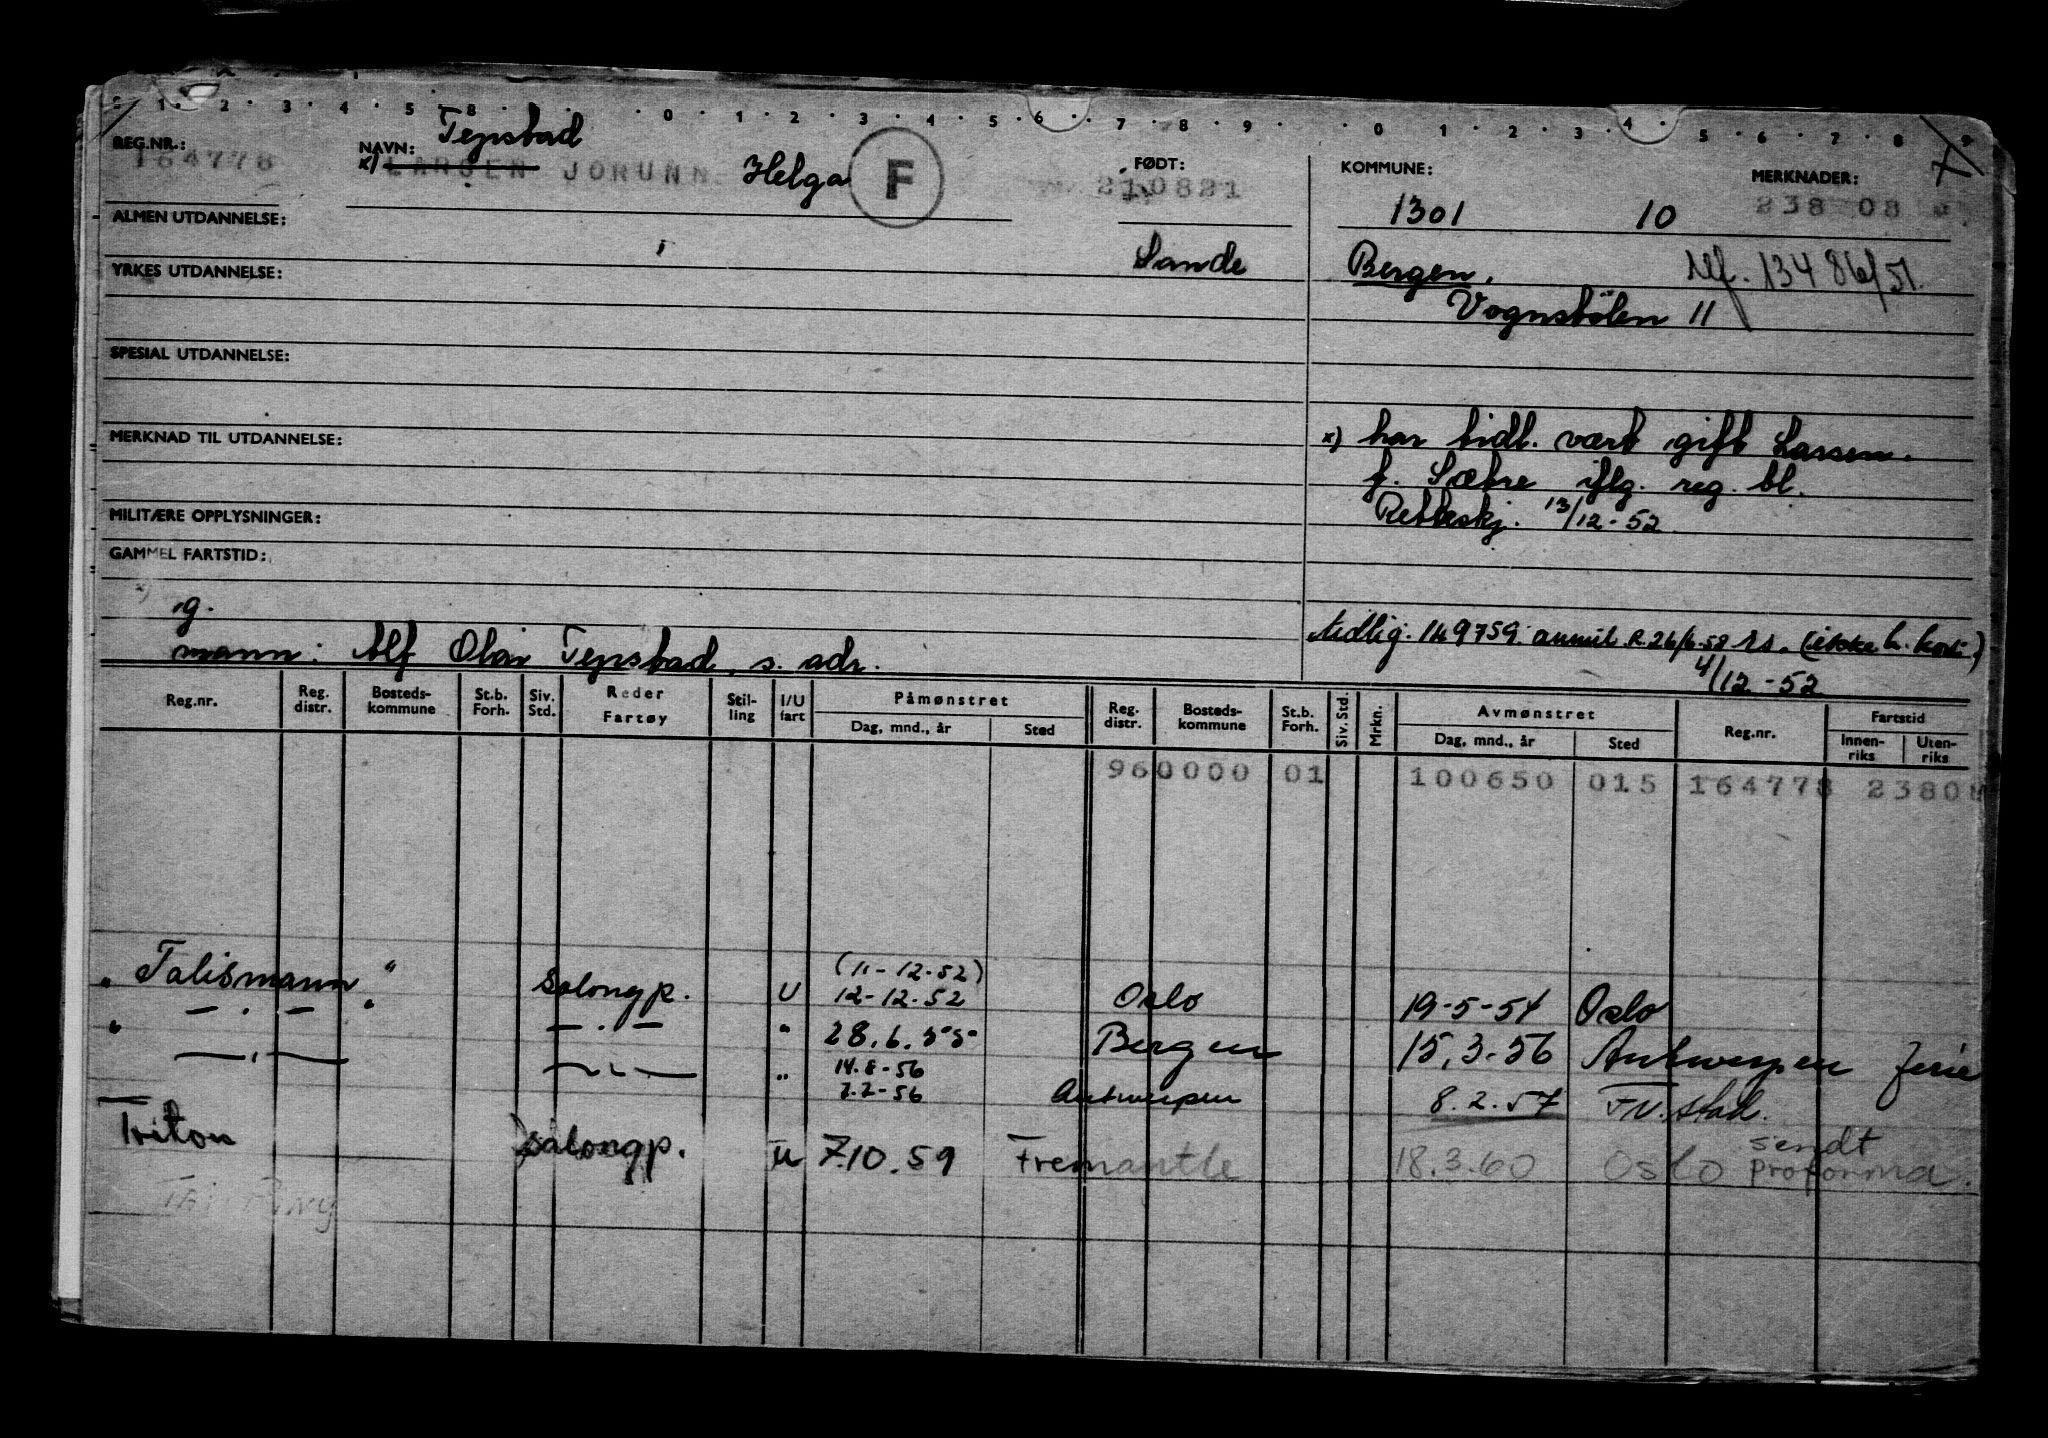 0 1 2 3 4 5 8 0 1 2 3 4 5 6 7 8 9 0 1 2 3 4 5 6 7 8 9
Tepstad
REG.NR.: 164778
NAVN: x) LARSEN JORUNN Helga F
FØDT: 210821
KOMMUNE: 1301 10
MERKNADER: 238 08
ALMEN UTDANNELSE:
Sande
Bergen.
13486/51.
YRKES UTDANNELSE:
Vognstölen 11
SPESIAL UTDANNELSE:
MERKNAD TIL UTDANNELSE:
x) har tidl. vært gift Larsen.
f. Sætre iflg. reg. bl.
Retteskj. 13/12-52
MILITÆRE OPPLYSNINGER:
GAMMEL FARTSTID:
g.
mann: Alf Olav Tepstad, s. adr.
Midlig. 149759. annul. R. 26/6-58 (ikke h. kort)
4/12-52
Reg.nr. Reg. distr. Bosteds-kommune St.b. Forh. Siv. Std. Reder Fartøy Stil-ling I/U fart Påmønstret Dag, mnd., år Sted Reg. distr. Bosteds-kommune St.b. Forh. Siv. Std. Mrkn. Avmønstret Dag, mnd., år Sted Reg.nr. Fartstid Innen-riks Uten-riks
960000 01 100650 015 164778 23808
(11-12-52)
" Talismann " Salongp. U 12-12-52 Oslo 19-5-54 Oslo
" — . — " — . — " 28.6.55 Bergen 15.3-56 Antwerpen Ferie
14.8-56
— " — — " — " 7.7-56 Antwerpen 8.2.57
Triton salongp. U 7.10.59 Fremantle 18.3.60 Oslo sendt proforma.